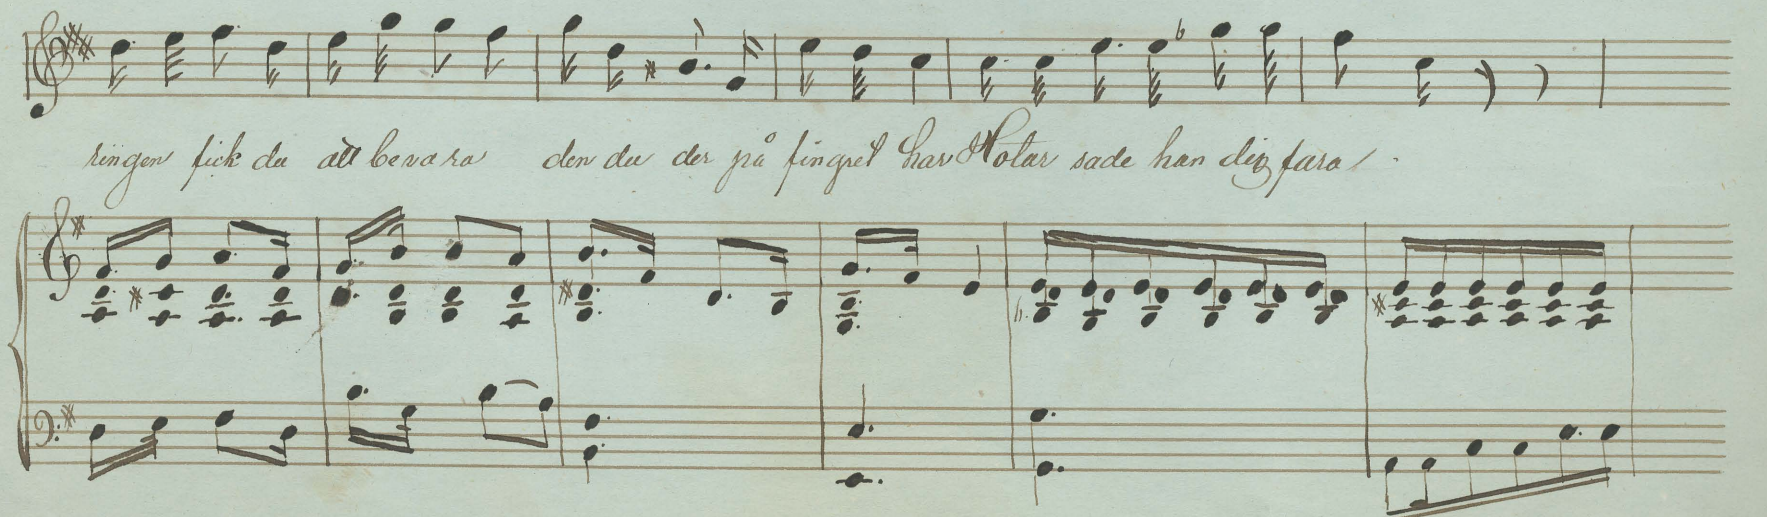 ringen fick du att bevara den du der på fingret har Hotar sade han dig fara